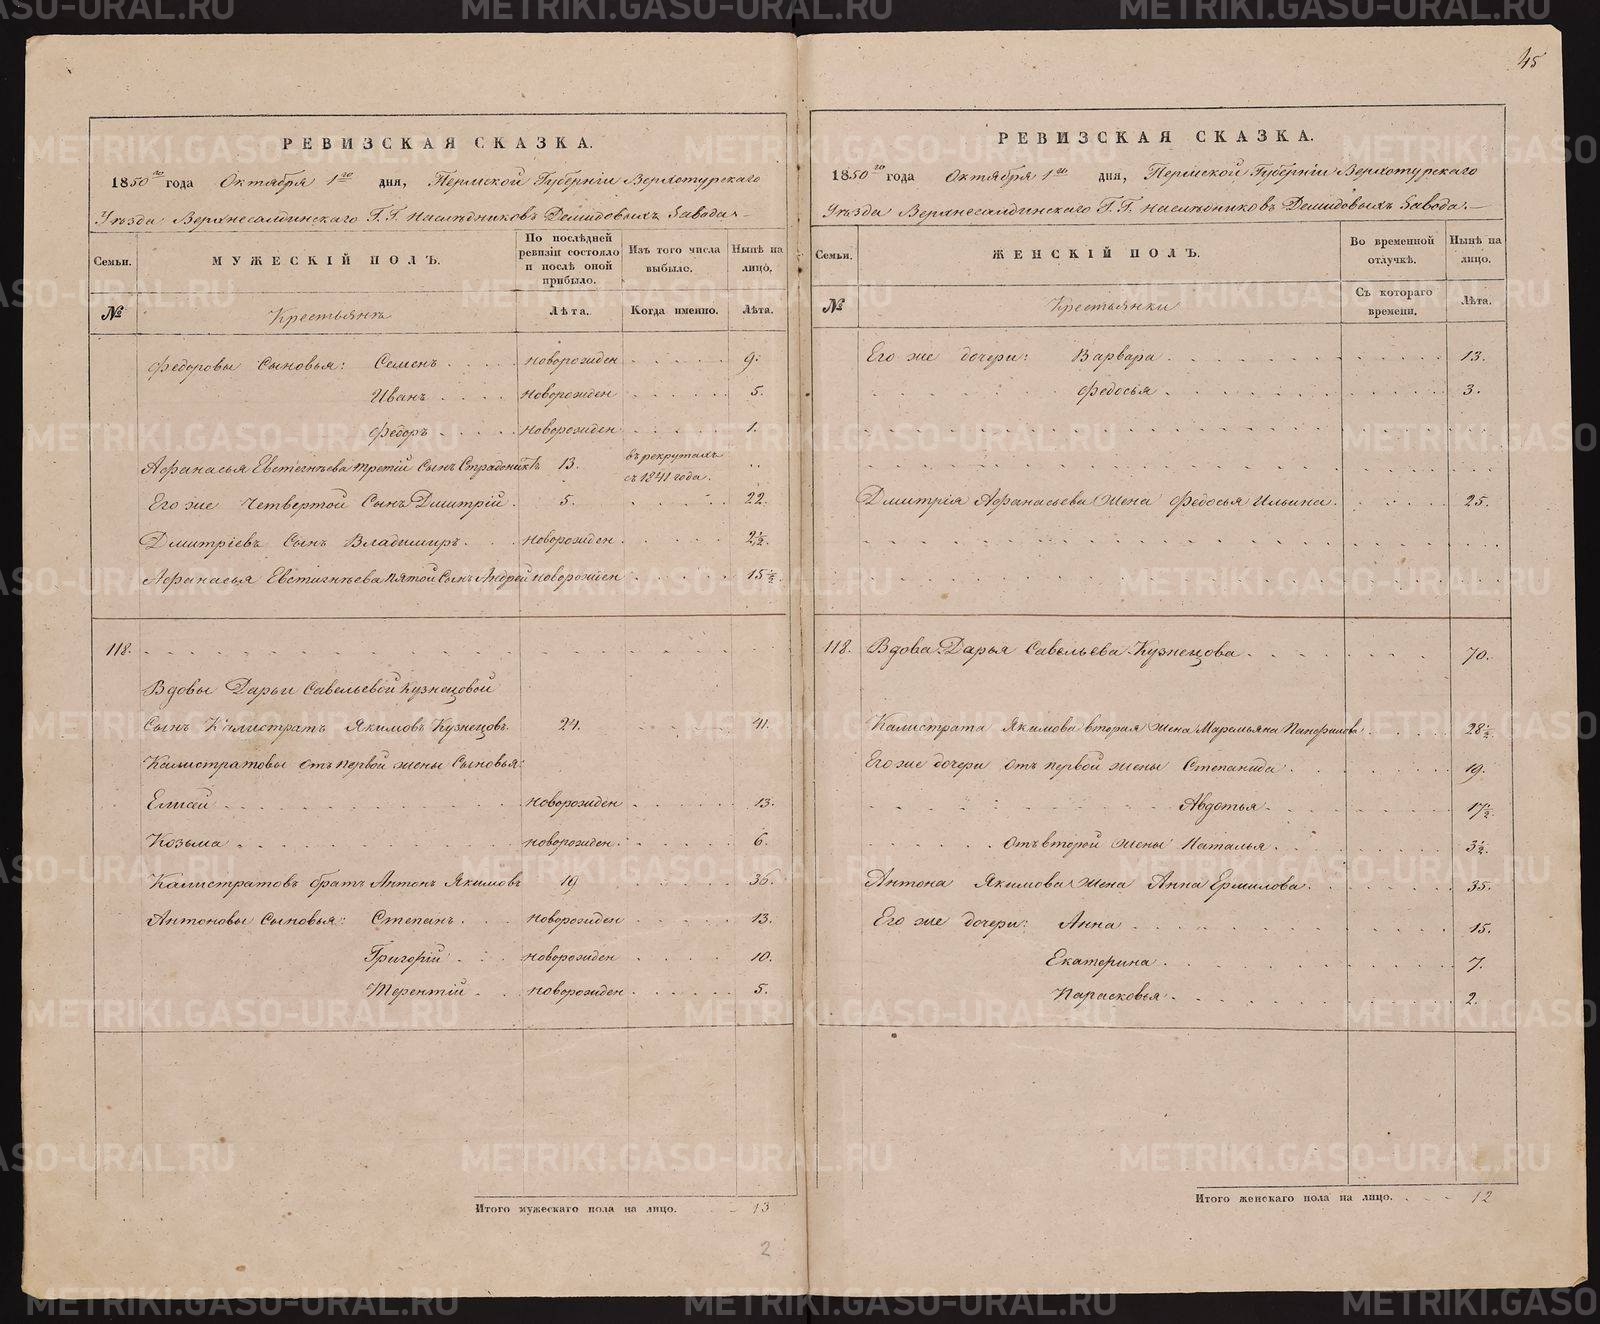 45
РЕВИЗСКАЯ СКАЗКА.
1850го года Октября 1го дня, Пермской Губерніи Верхотурскаго
Уѣзда Верхнесалдинскаго Г.Г. наслѣдниковъ Демидовыхъ Завода.
Семьи.
МУЖЕСКІЙ ПОЛЪ.
По послѣдней ревизіи состояло и послѣ оной прибыло.
Изъ того числа выбыло.
Нынѣ на лицо.
№
Крестьянъ
Лѣта.
Когда именно.
Лѣта.
Федоровы Сыновья: Семенъ новорожден 9.
Иванъ новорожден 5.
Федоръ новорожден 1.
Афанасья Евстегнѣева третій Сынъ Страдоникъ 13. въ рекрутахъ съ 1841 года.
Его же Четвертой Сынъ Дмитрій 5. 22.
Дмитріевъ Сынъ Владимиръ новорожден 2½.
Афанасья Евстигнѣева пятой Сынъ Андрей новорожден 15½.
118.
Вдовы Дарьи Савельевой Кузнецовой
Сынъ Калистратъ Якимовъ Кузнецовъ 24. 41.
Калистратовы отъ первой жены Сыновья:
Елисей новорожден 13.
Козьма новорожден 6.
Калистратовъ братъ Антонъ Якимовъ 19 36.
Антоновы Сыновья: Степанъ новорожден 13.
Григорій новорожден 10.
Терентій новорожден 5.
Итого мужескаго пола на лицо. 13
2
РЕВИЗСКАЯ СКАЗКА.
1850го года Октября 1го дня, Пермской Губерніи Верхотурскаго
Уѣзда Верхнесалдинскаго Г.Г. наслѣдниковъ Демидовыхъ Завода.
Семьи.
ЖЕНСКІЙ ПОЛЪ.
Во временной отлучкѣ.
Нынѣ на лицо.
№
Крестьянки
Съ котораго времени.
Лѣта.
Его же дочери: Варвара 13.
Федосья 3.
Дмитрія Афанасьева жена Федосья Ильина 25.
118. Вдова Дарья Савельева Кузнецова 70.
Калистрата Якимова вторая жена Маремьяна Панфилова 28½.
Его же дочери отъ первой жены Степанида 19.
Авдотья 17½.
отъ второй жены Наталья 3½.
Антона Якимова жена Анна Ермилова 35.
Его же дочери: Анна 15.
Екатерина 7.
Парасковья 2.
Итого женскаго пола на лицо. 12
METRIKI.GASO-URAL.RU